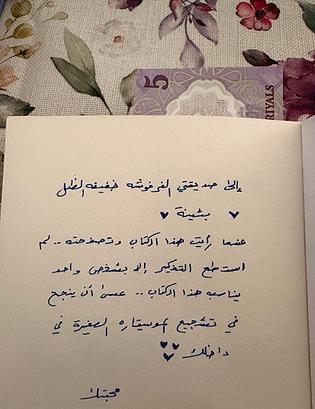 5
RIYALS
إلى صديقتي الفرفوشه خفيفه الظل
♥ بثينة ♥
عندما رأيت هذا الكتاب وتصفحته .. لم
استطع التفكير إلا بشخص واحد
يناسبه هذا الكتاب .. عسى أن ينجح
في تشجيع الموسيقاره الصغيرة في
داخلك ♥♥♥
محبتك